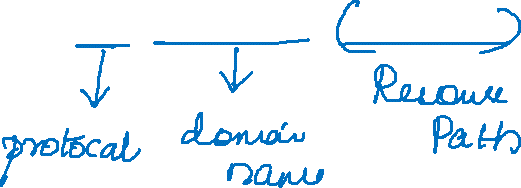 protocal
domain
name
Resource
Path